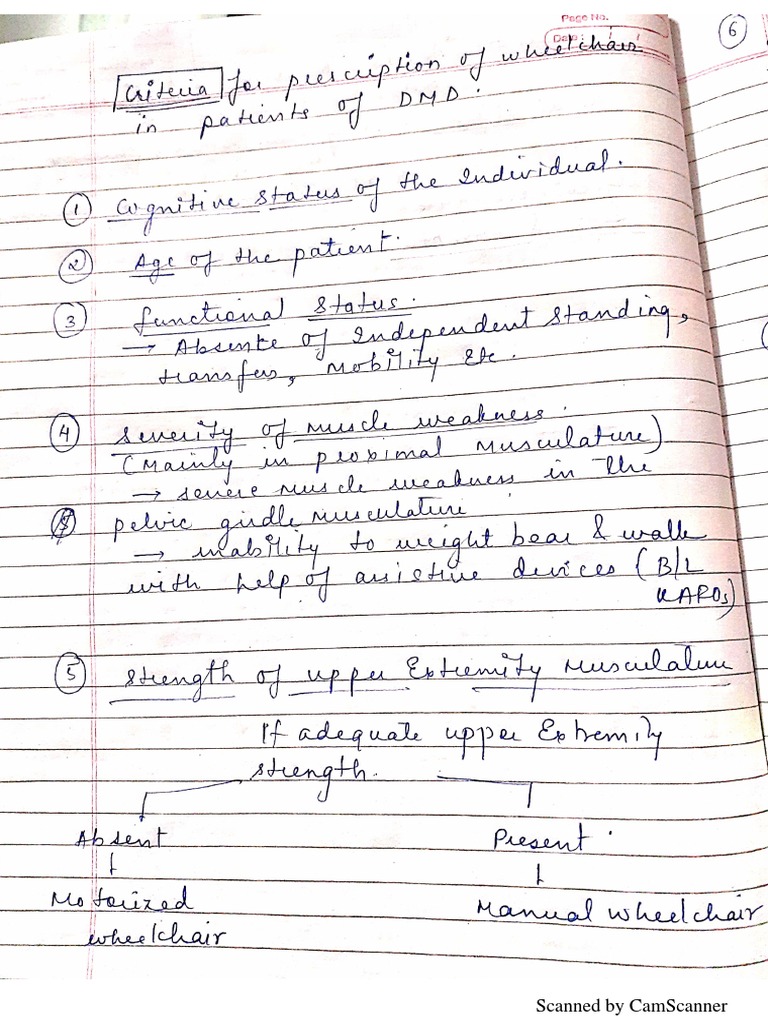 Page No.
Date
6
Criteria for prescription of wheelchair
in patients of DMD.
① Cognitive status of the Individual.
② Age of the patient.
③ functional status.
→ Absence of Independent standing,
transfers, mobility etc.
④ severity of muscle weakness.
(Mainly in proximal musculature)
→ severe muscle weakness in the
pelvic girdle musculature
→ inability to weight bear & walk
with help of assistive devices (B/L
KAFOs)
⑤ strength of upper Extremity Musculature
If adequate upper Extremity
strength.
Absent
Present
Motorized
wheelchair
Manual wheelchair
Scanned by CamScanner